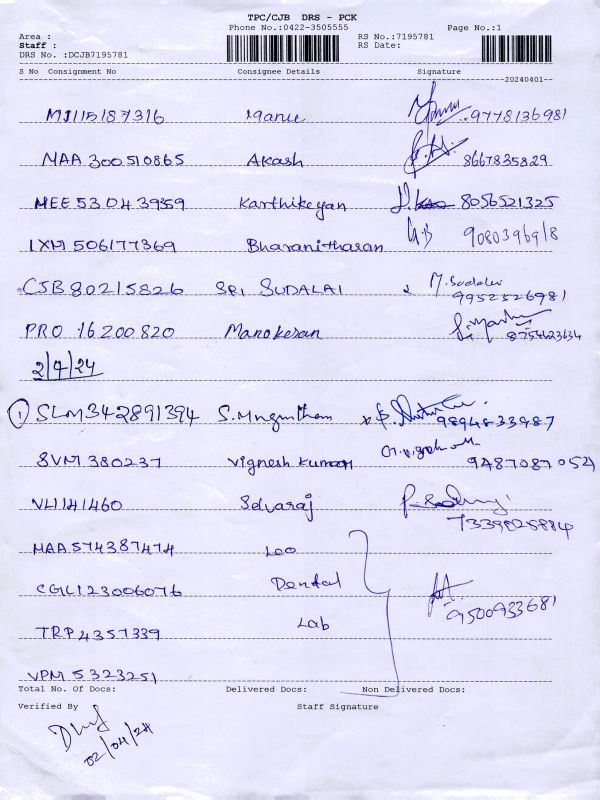 TPC/CJB DRS - PCK
Phone No.:0422-3505555
Page No.:1
Area :
RS No.:7195781
Staff :
RS Date:
DRS No. :DCJB7195781
S No Consignment No Consignee Details Signature
20240401
MJ115187316 Manu 9778136981
MAA 300510865 Akash 8667835829
MEE 53043959 Karthikeyan 8056521325
IXM 506177369 Bharanitharan G.B 908039698
CJB 80215826 SRI SUDALAI M. Sudalai
9952526981
PRO 16200820 Manokeran 8754423634
2/4/24
① SLM342891394 S. 9894833987
SVM 380237 Vignesh Kumar 9487087052
VL1141460 Selvaraj
7339025884
MAA574387474 Leo
CGL123006076 Dental
9500933681
TRP 4357339 Lab
VPM 5323251
Total No. Of Docs: Delivered Docs: Non Delivered Docs:
Verified By Staff Signature
02/04/24